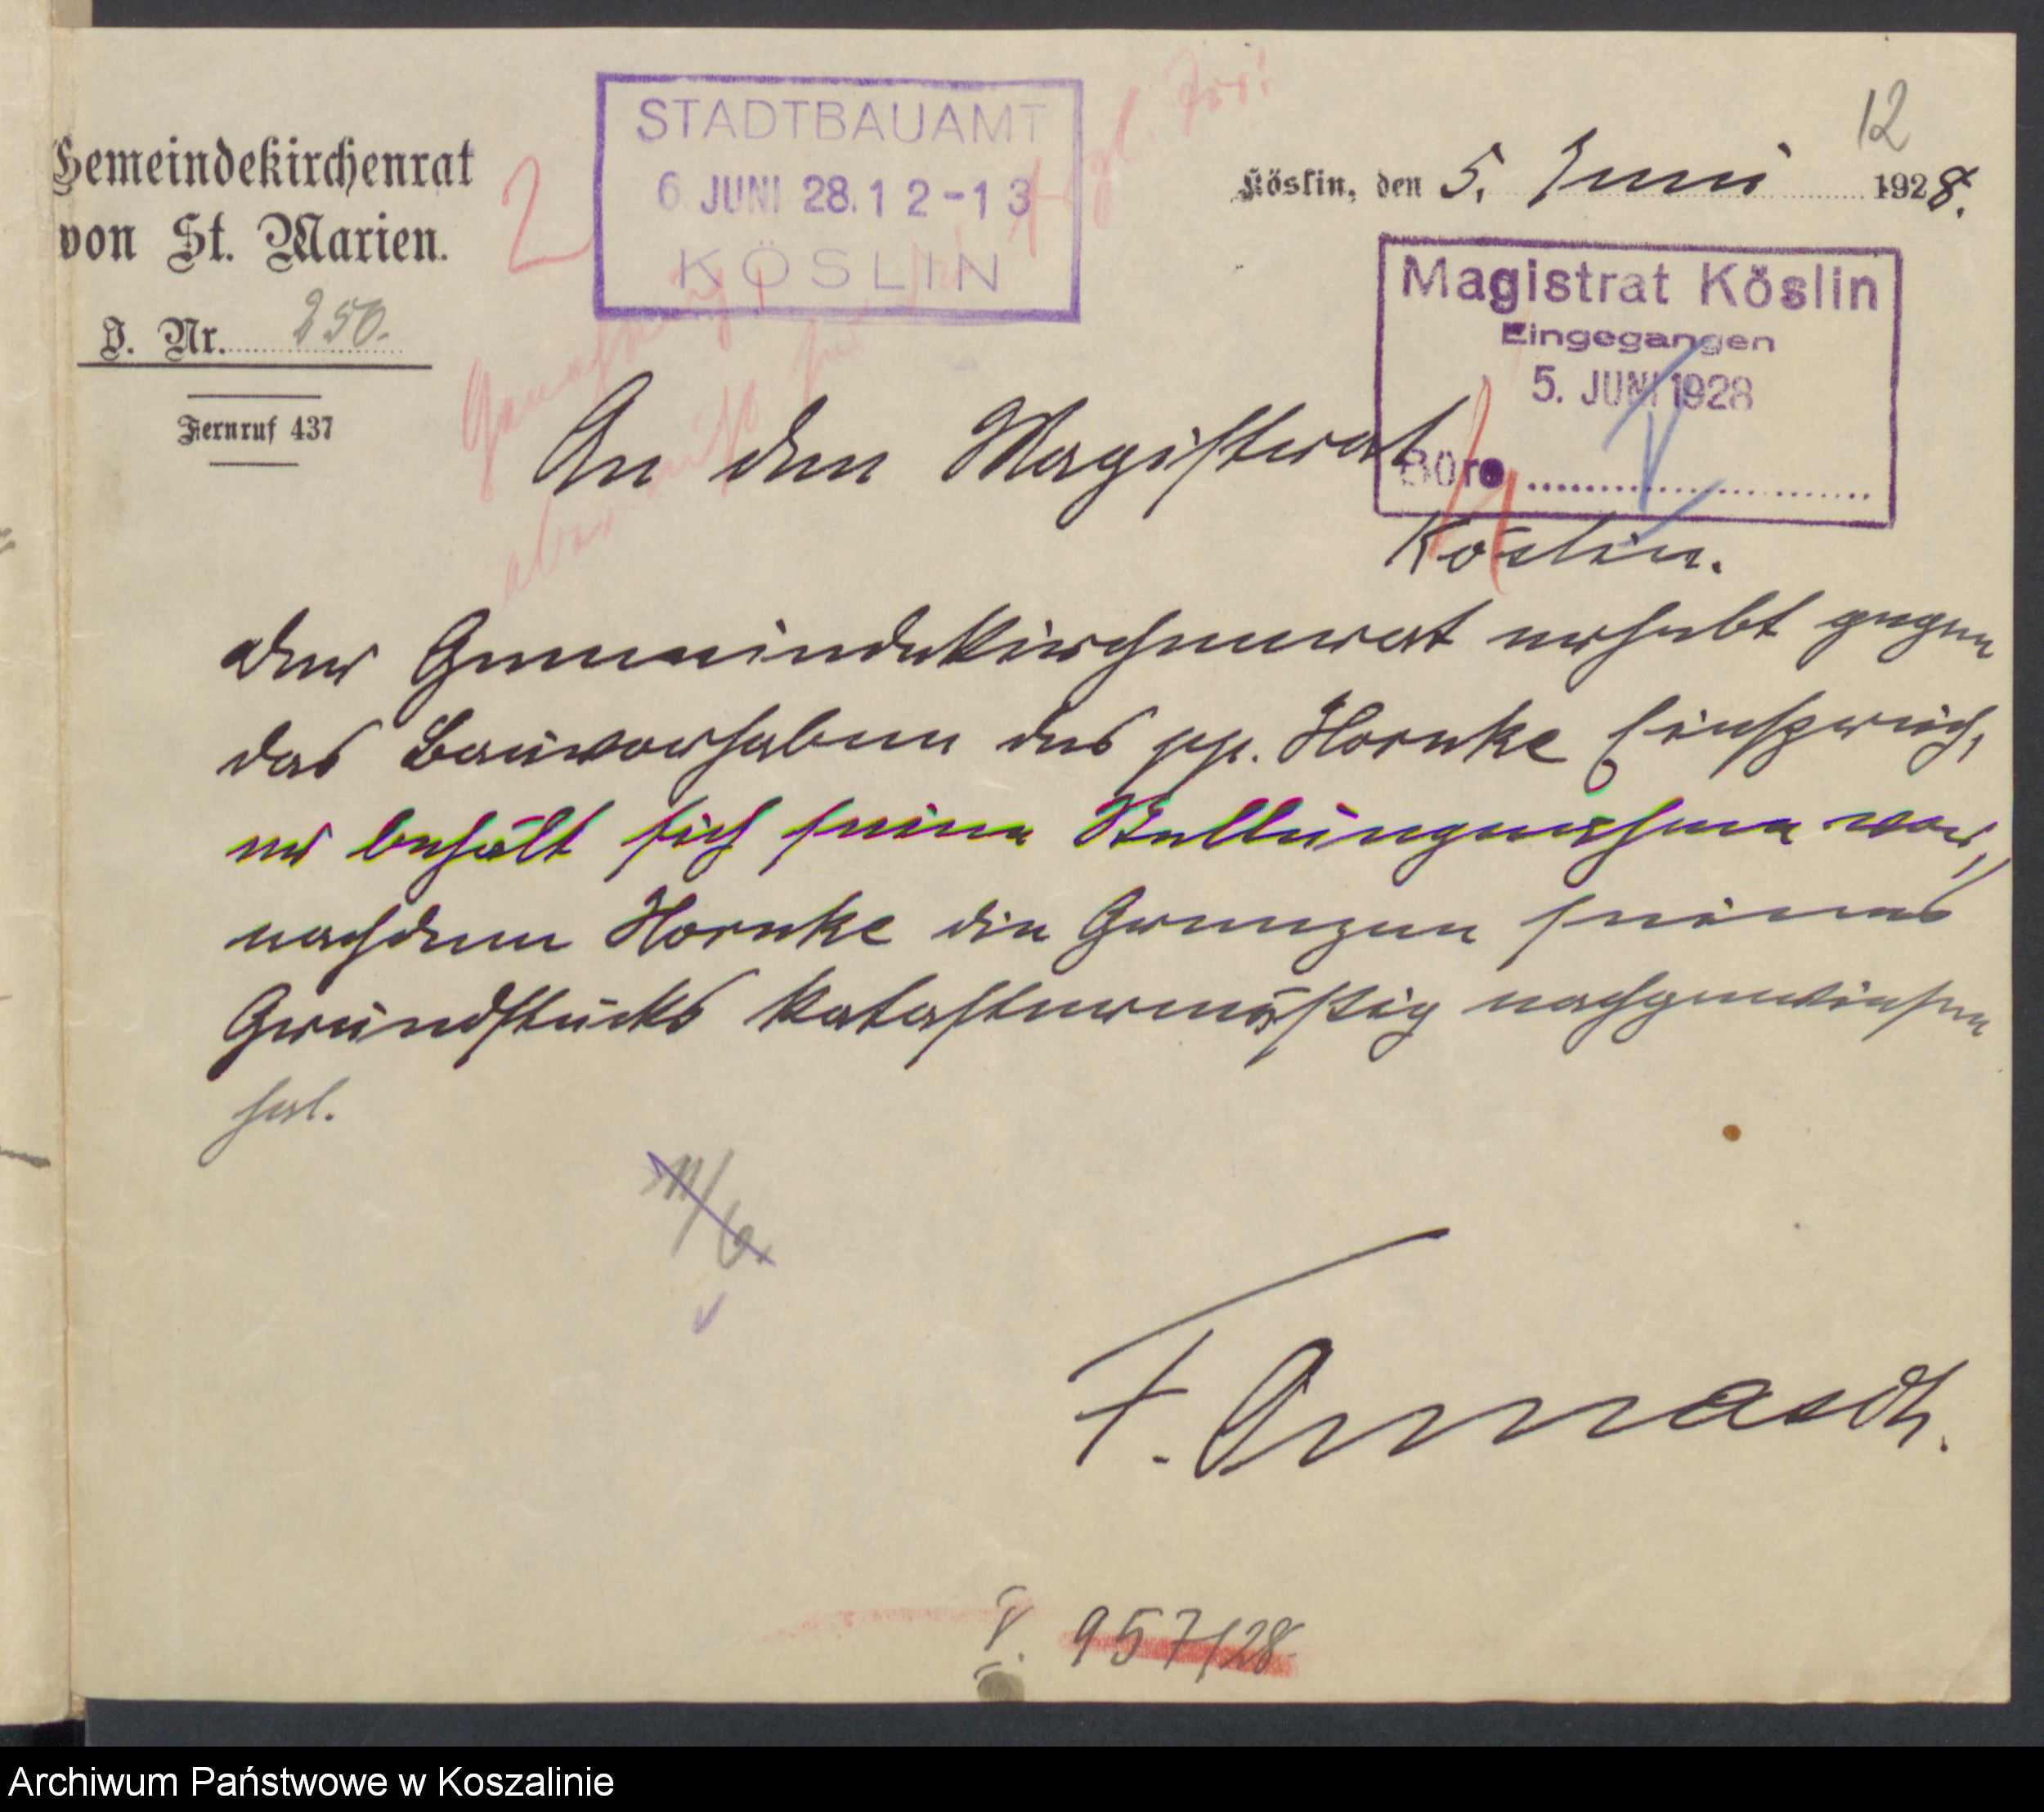 12
Gemeindekirchenrat
von St. Marien.
J. Nr. 250.
Fernruf 437
STADTBAUAMT
6. JUNI 28. 12-13
KÖSLIN
2
Köslin, den 5. Juni 1928.
Magistrat Köslin
Eingegangen
5. JUNI 1928
Büro
V
An den Magistrat
Köslin.
Der Gemeindekirchenrat erhebt gegen
das Bauvorhaben des pp. Hornke Einspruch,
er behält sich seine Stellungnahme vor,
nachdem Hornke die Grenzen seines
Grundstücks katastermäßig nachgewiesen
hat.
11/6.
F.
V. 957/28.
Archiwum Państwowe w Koszalinie